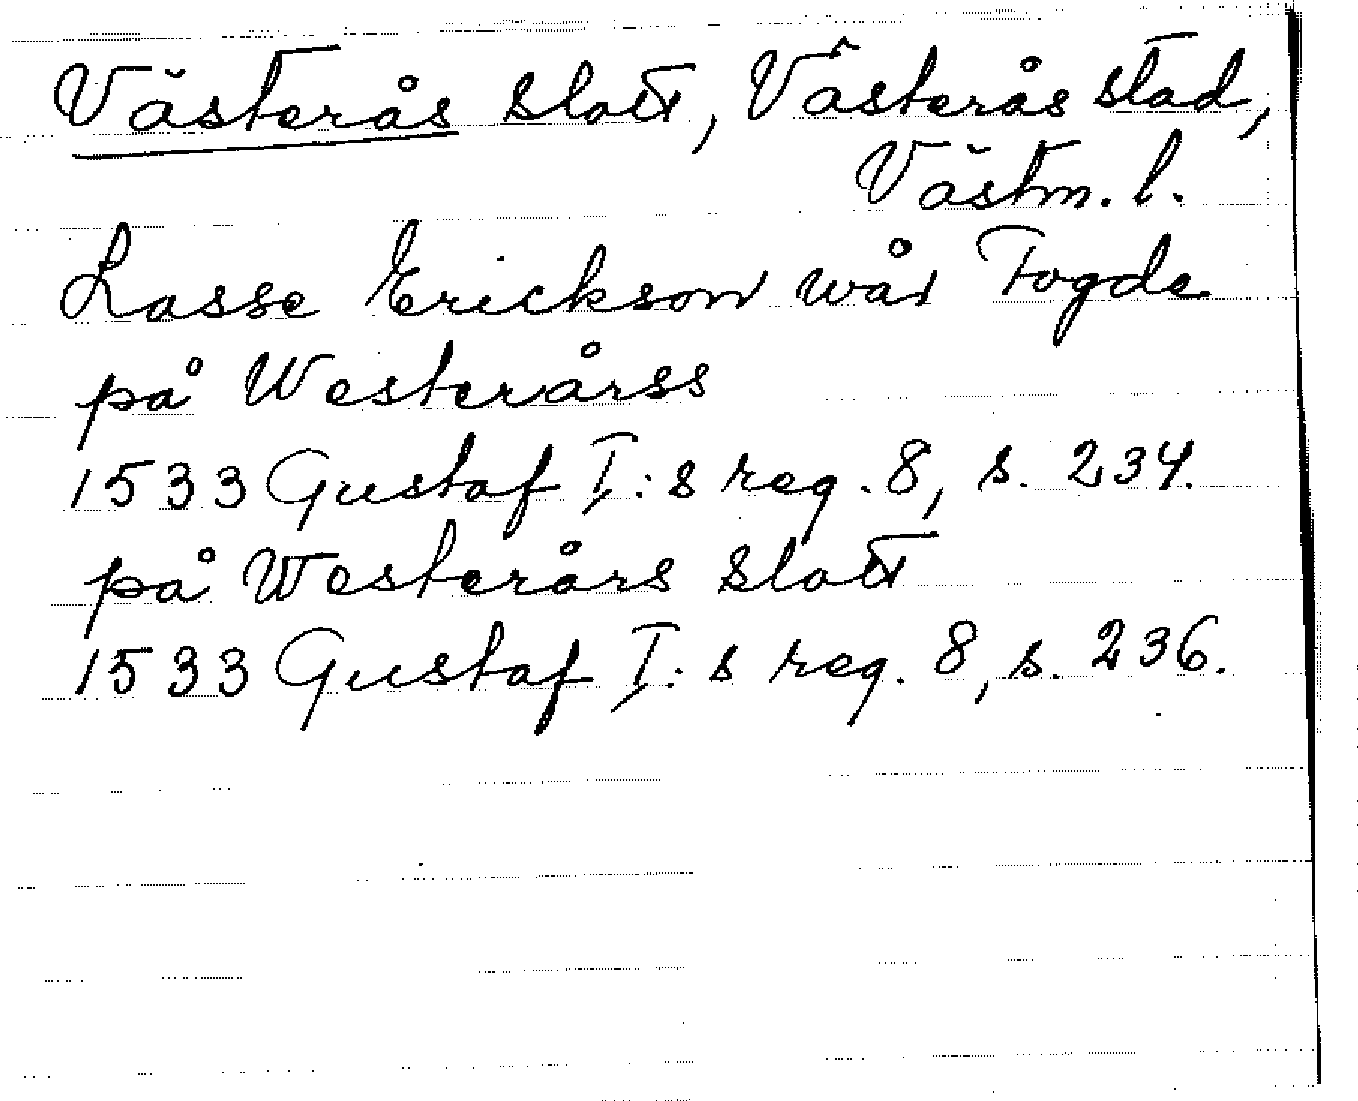 Västerås slott, Västerås stad,
Västm. l.
Lasse Erickson wår Fogde
på Westerårss
1533 Gustaf I:s reg. 8, s. 234.
på Westerårs slott
1533 Gustaf I:s reg. 8, s. 236.